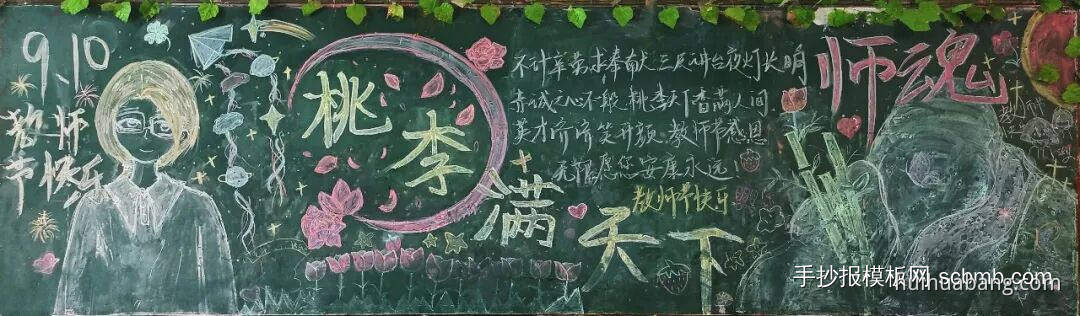 9.10
教师
节快乐
桃李满天下
不计辛劳求奉献 三尺讲台夜灯长明
赤诚之心不毁 桃李天下香满人间
英才济济笑开颜 教师节感恩
无限愿您安康永远!
教师节快乐
师魂
手抄报模板网 scbmh.com
huihuabang.com